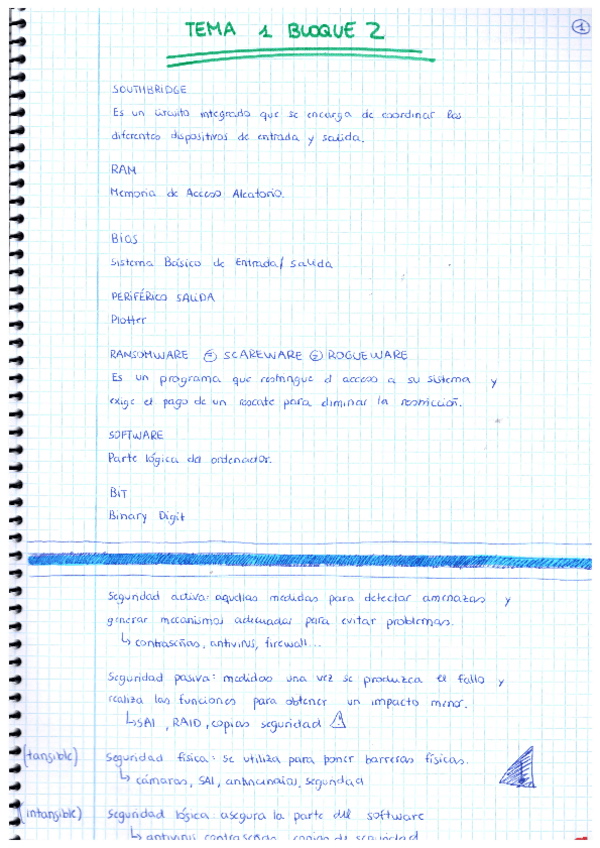 TEMA 1 BLOQUE 2
1
SOUTHBRIDGE
Es un circuito integrado que se encarga de coordinar los
diferentes dispositivos de entrada y salida.
RAM
Memoria de Acceso Aleatorio.
Bios
Sistema Básico de Entrada/ Salida
PERIFÉRICO SALIDA
Plotter
RANSOMWARE = SCAREWARE = ROGUEWARE
Es un programa que restringue el acceso a su sistema y
exige el pago de un rescate para eliminar la restricción.
SOFTWARE
Parte lógica del ordenador.
BIT
Binary Digit
Seguridad activa: aquellas medidas para detectar amenazas y
generar mecanismos adecuados para evitar problemas.
↳ contraseñas, antivirus, firewall...
Seguridad pasiva: medidas una vez se produzca el fallo y
realiza las funciones para obtener un impacto menor.
↳ SAI, RAID, copias seguridad
(tangible) Seguridad física: se utiliza para poner barreras físicas.
↳ cámaras, SAI, antincendios, seguridad
(intangible) Seguridad lógica asegura la parte del software
↳ antivirus contraseñas copias de seguridad